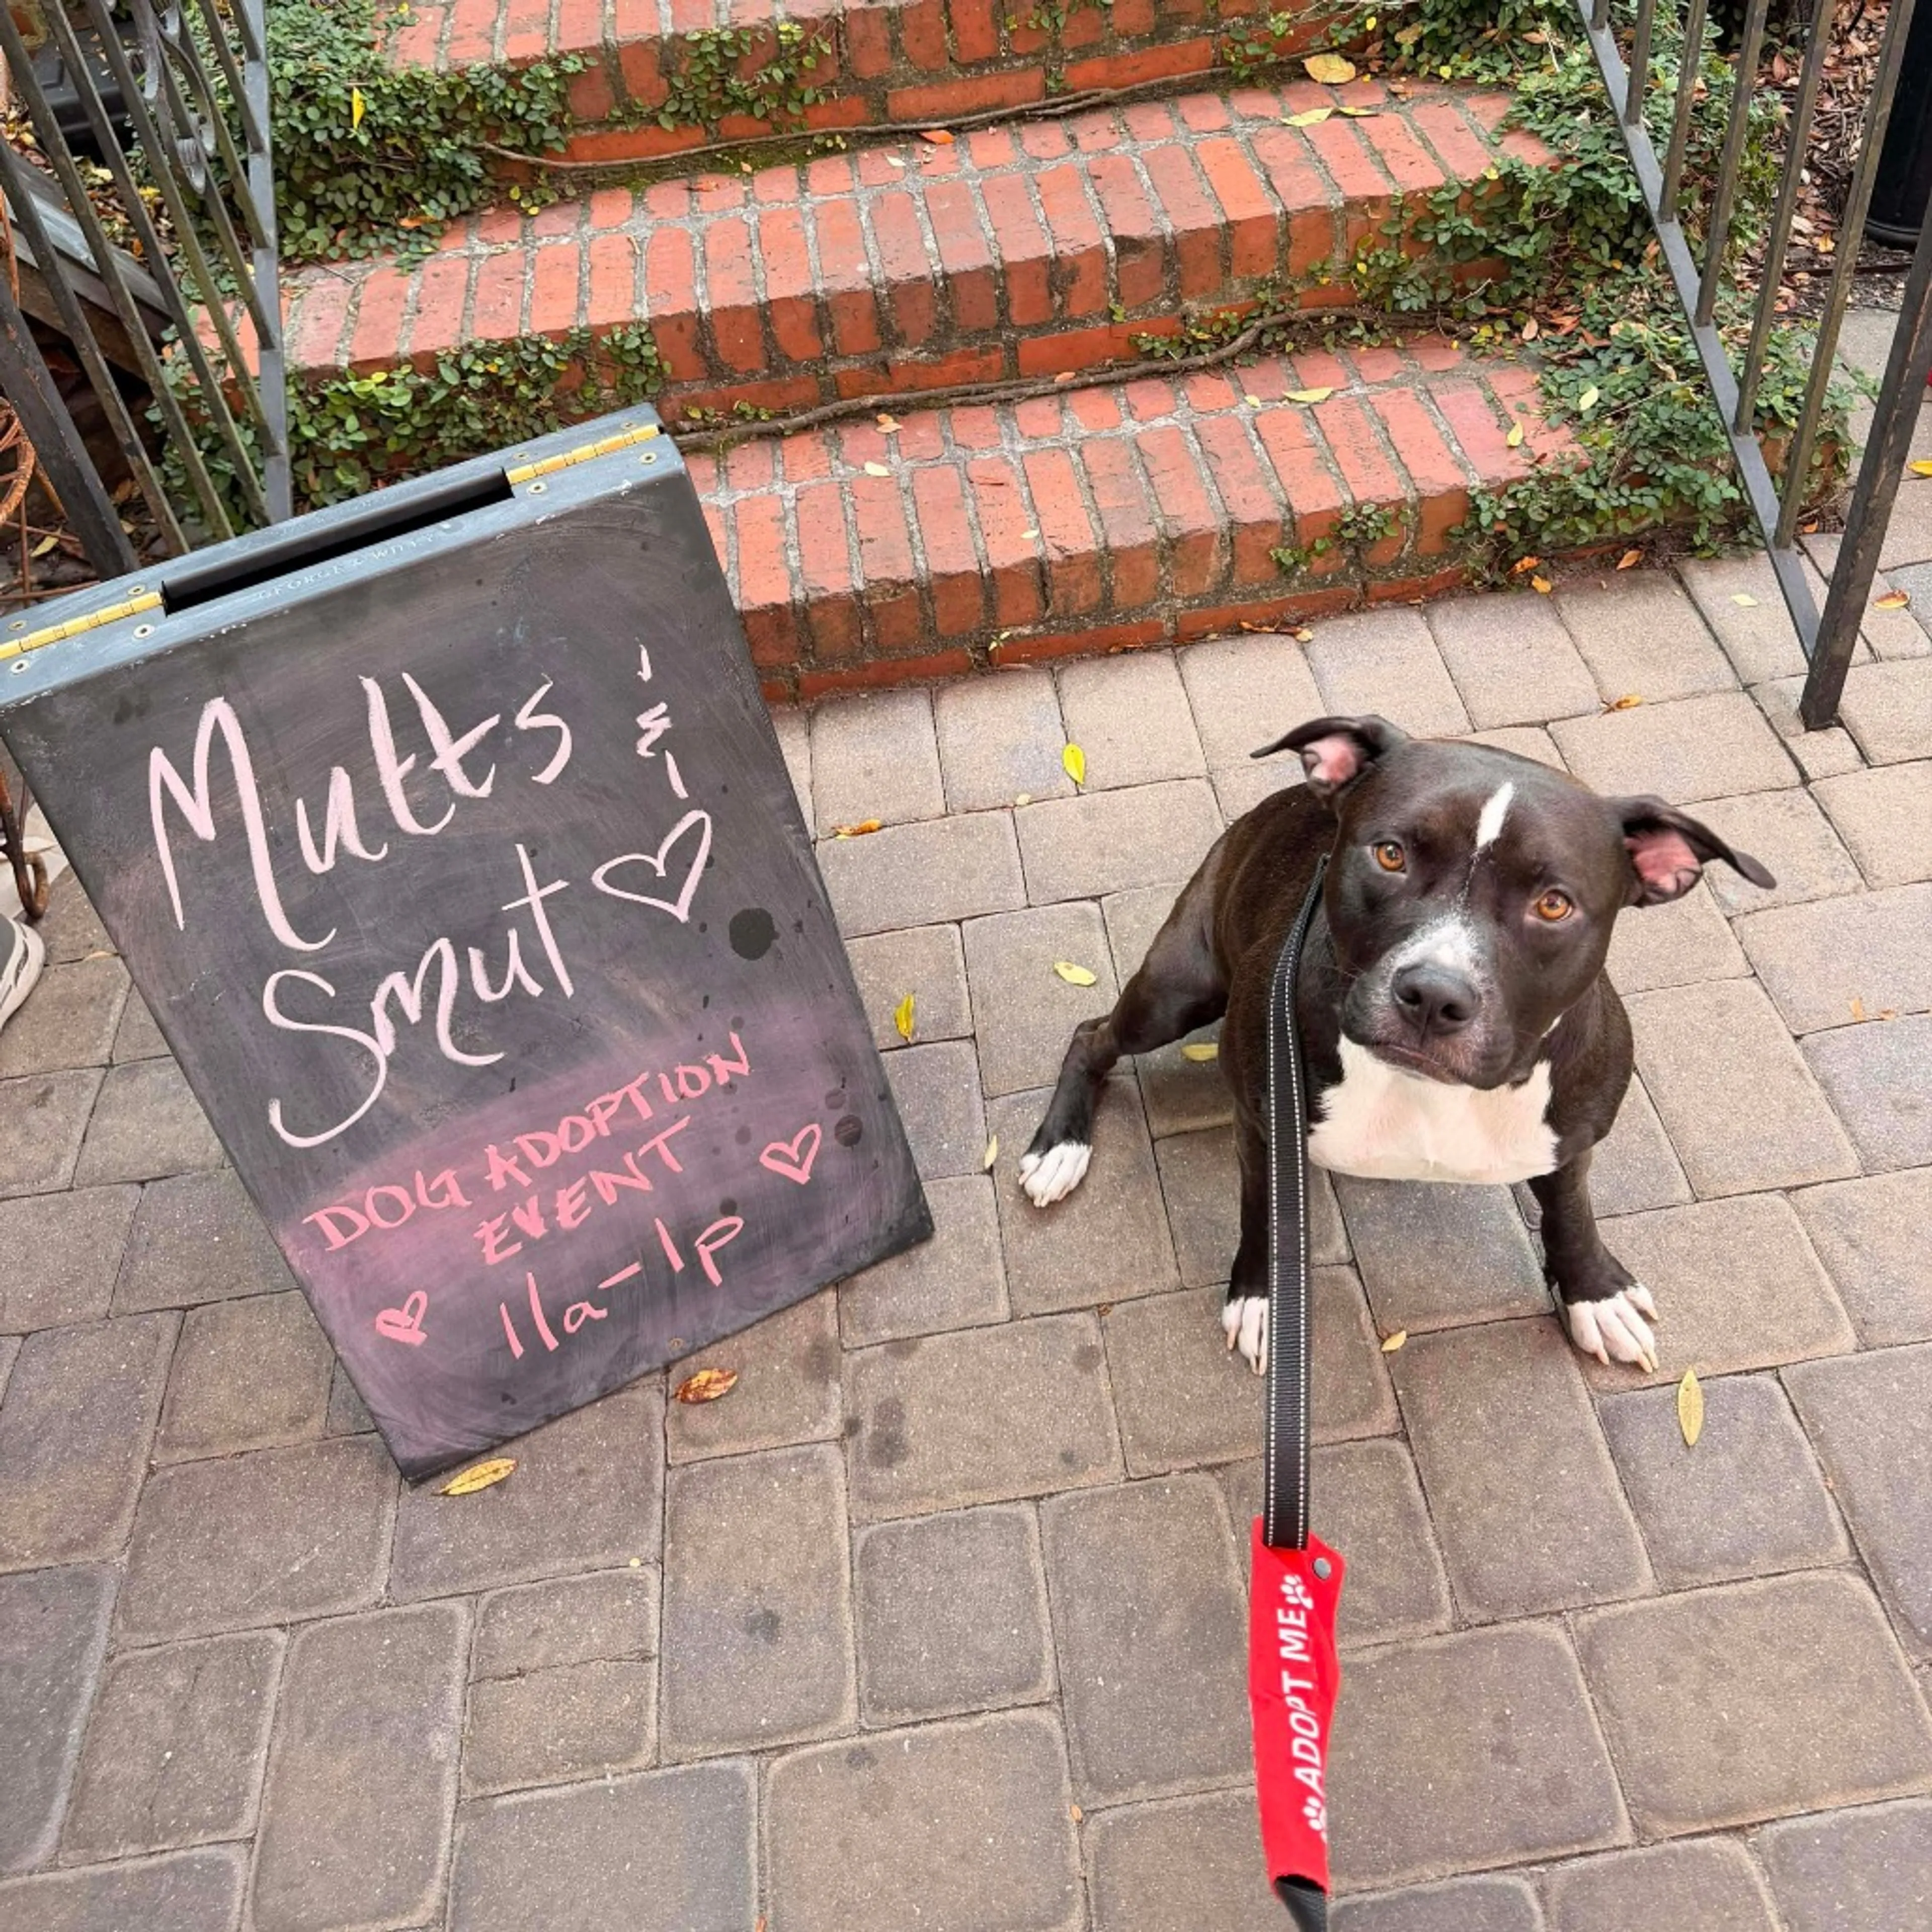 Mutts &
Smut
DOG ADOPTION
EVENT
11a-1p
ADOPT ME